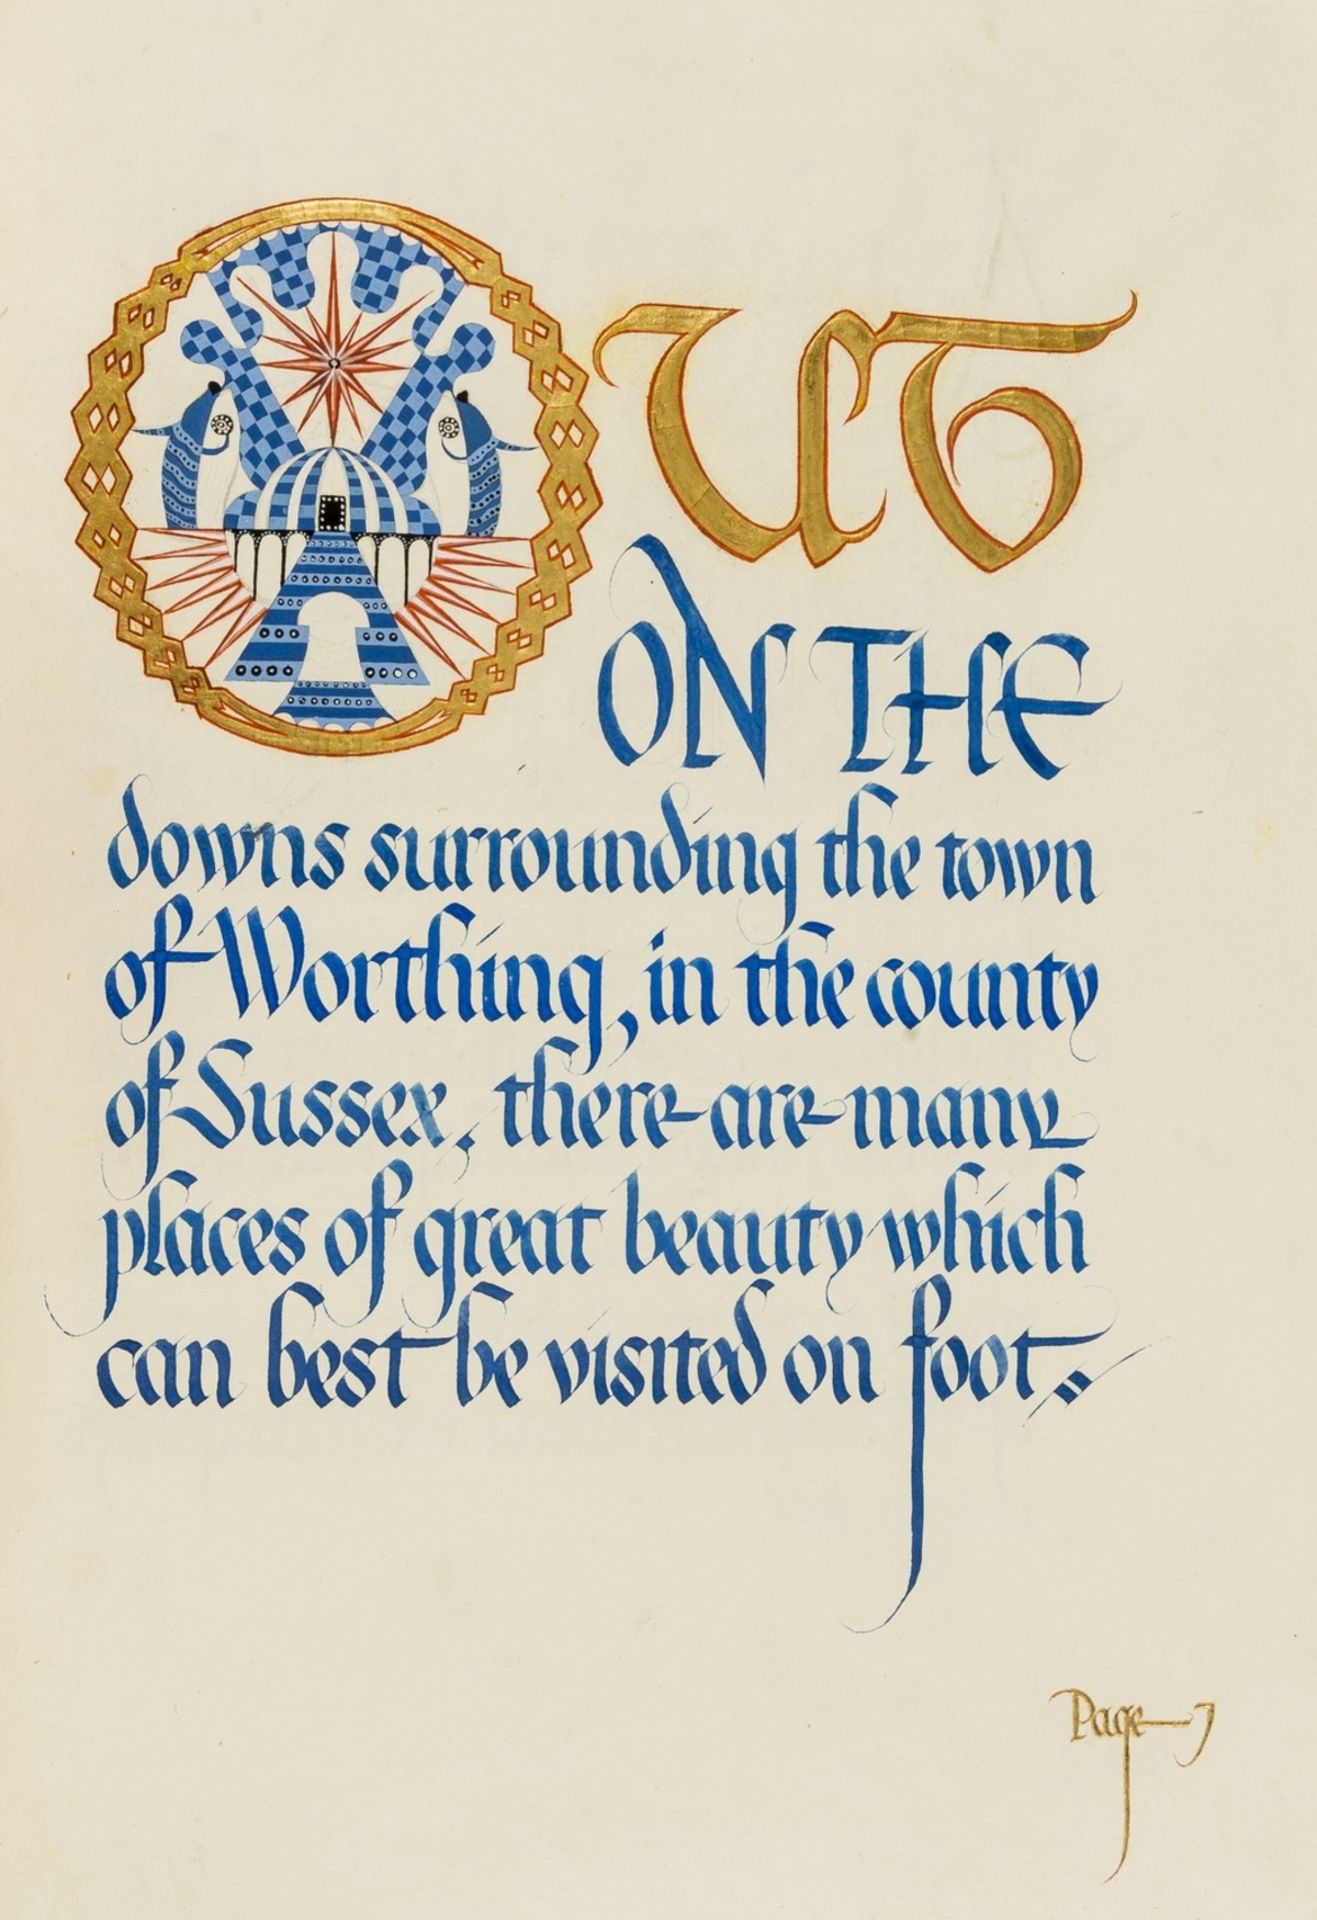 OUT
ON THE
downs surrounding the town
of Worthing, in the county
of Sussex, there are many
places of great beauty which
can best be visited on foot.
Page 7